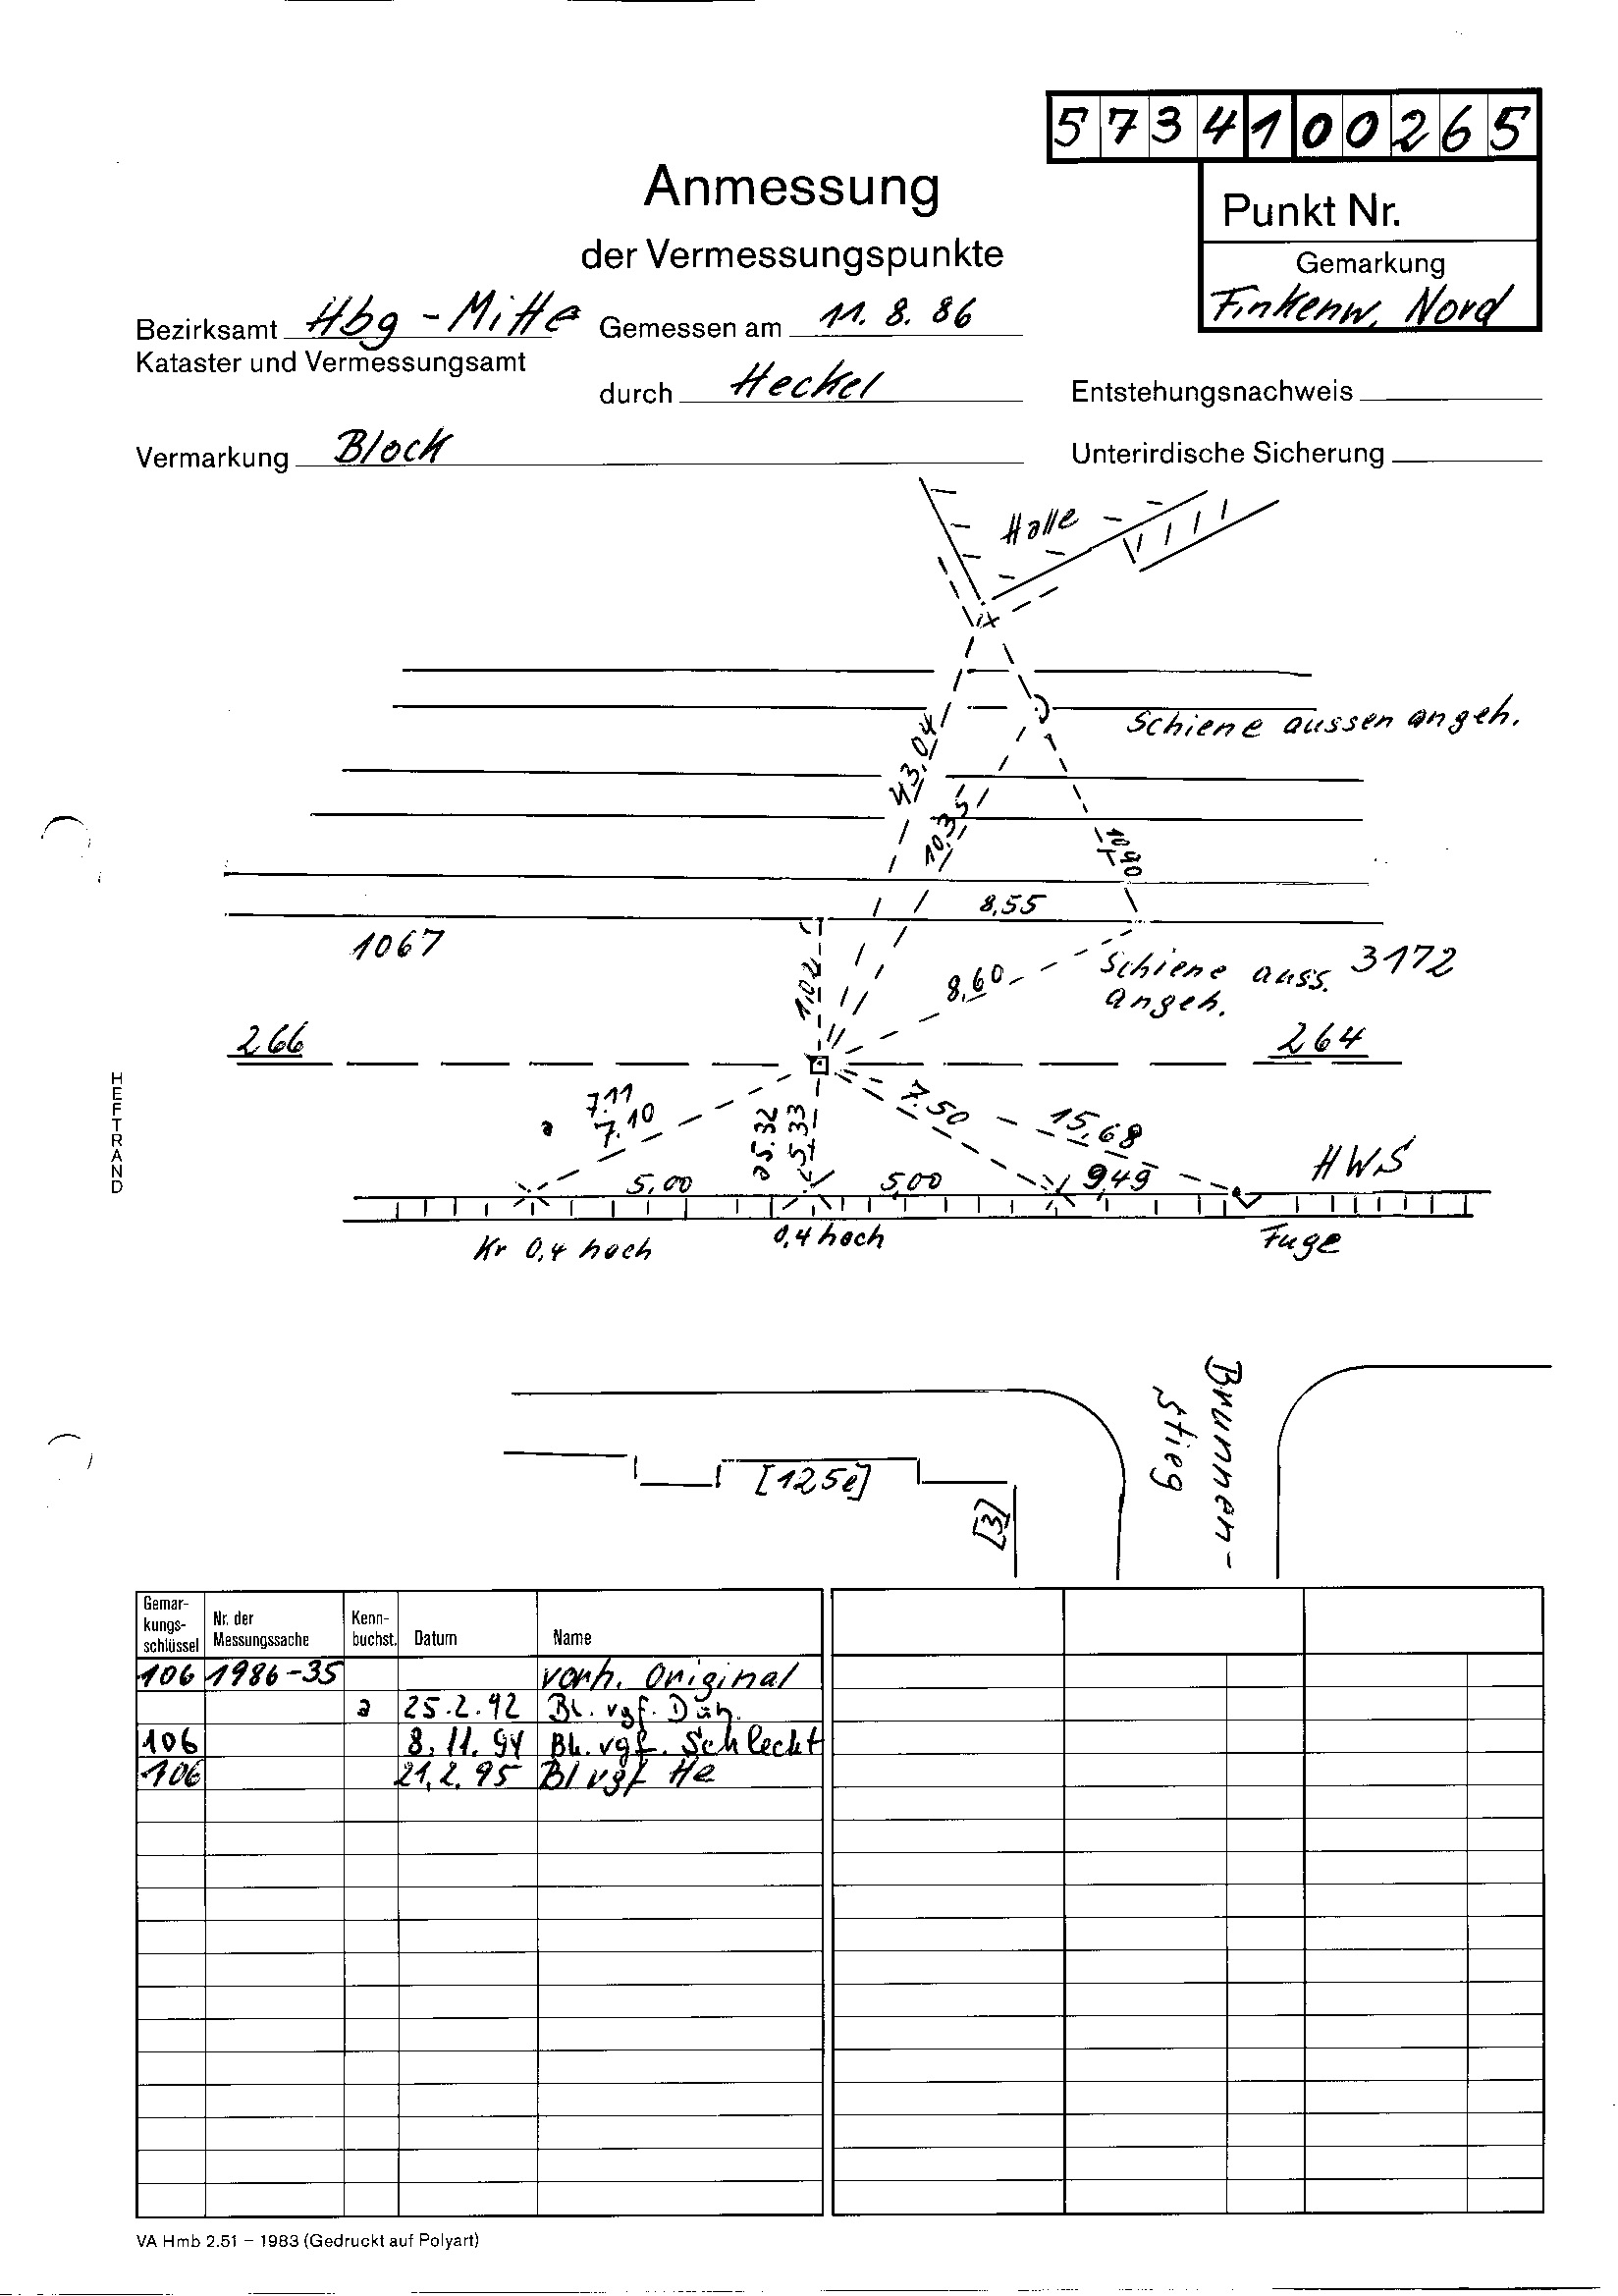 5734100265
Anmessung
der Vermessungspunkte
Punkt Nr.
Gemarkung
Finkenw. Nord
Bezirksamt Hbg-Mitte
Kataster und Vermessungsamt
Gemessen am 11. 8. 86
durch Heckel
Entstehungsnachweis
Vermarkung Block
Unterirdische Sicherung
Halle
Schiene aussen angeh.
43,04
10,35
10,90
8,55
1067
1,02
8,60
Schiene auss.
angeh.
3172
266
264
HEFTRAND
a 7.11
7.10
a 5.32
5,33
7.50
15,68
5,00
5,00
9,49
HWS
Kr 0,4 hoch
0,4 hoch
Fuge
Brunnen-
stieg
[125e]
[3]
Gemar-
kungs-
schlüssel
Nr. der
Messungssache
Kenn-
buchst.
Datum
Name
106 1986-35 vorh. Original
a 25.2.92 Bl. vgf. Düh.
106 8.11.94 Bl. vgf. Schlecht
106 21.2.95 Bl vgf He
VA Hmb 2.51 – 1983 (Gedruckt auf Polyart)